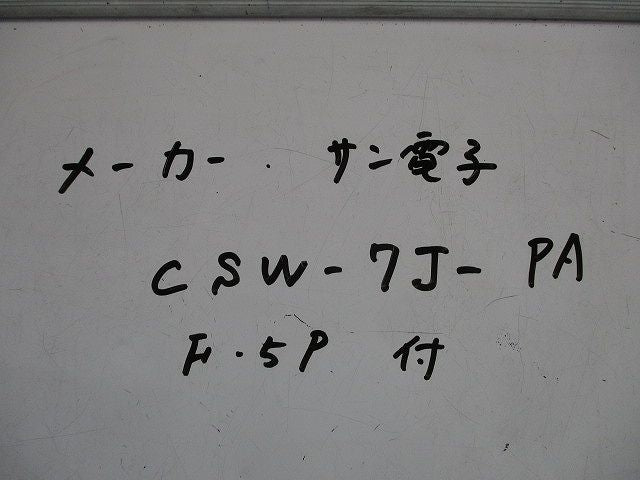 メーカー . サン電子
CSW-7J-PA
F.5P 付